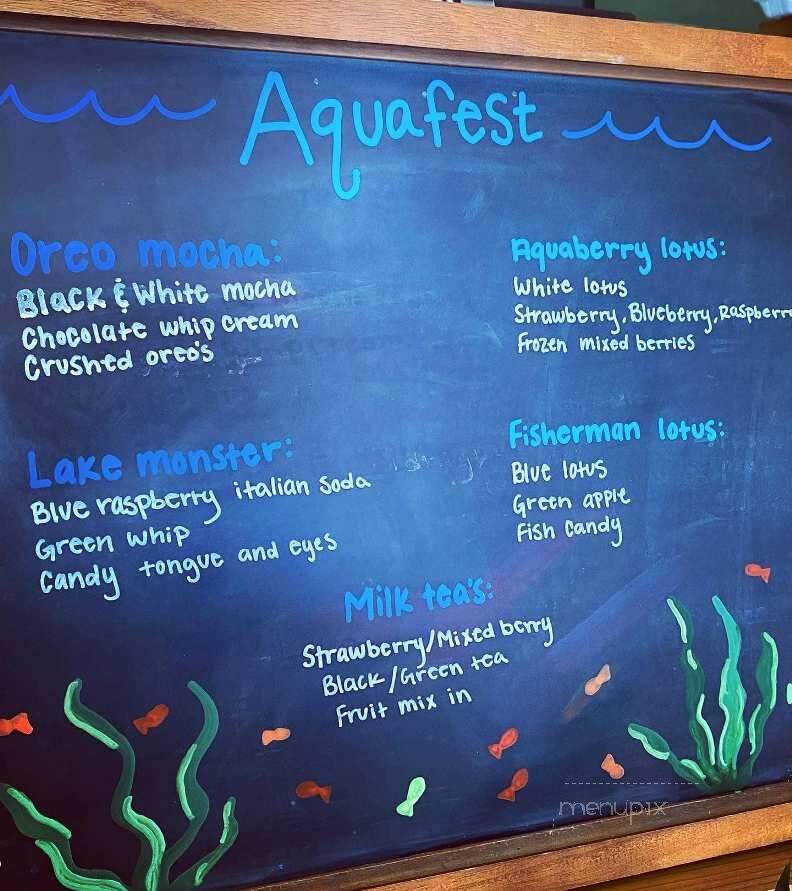 Aquafest
Oreo mocha:
Black & White mocha
Chocolate whip cream
Crushed oreo's
Aquaberry lotus:
White lotus
Strawberry, Blueberry, Raspberry
Frozen mixed berries
Lake monster:
Blue raspberry italian soda
Green whip
Candy tongue and eyes
Fisherman lotus:
Blue lotus
Green apple
Fish candy
Milk tea's:
Strawberry/Mixed berry
Black/Green tea
Fruit mix in
menupix